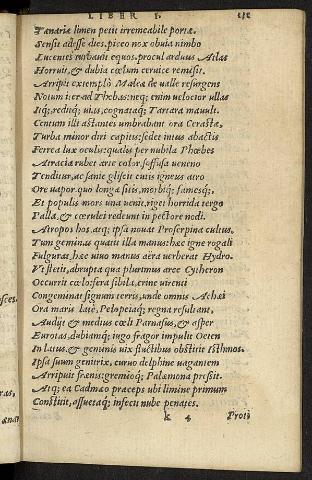 LIBER I.
Tænariæ limen petit irremeabile portæ.
Sensit adesse dies. piceo nox obuia nimbo
Lucentes turbauit equos. procul arduus Atlas
Horruit, & dubia cœlum ceruice remisit.
Arripit extemplò Maleæ de ualle resurgens
Notum iter ad Thebas: neq; enim uelocior ullas
Itq; reditq; uias, cognataq; Tartara mauult.
Centum illi astantes umbrabant ora Cerastæ,
Turba minor diri capitis: sedet intus abactis
Ferrea lux oculis: qualis per nubila Phœbes
Atracia rubet arte color: suffusa ueneno
Tenditur, ac sanie gliscit cutis igneus atro
Ore uapor. quo longa sitis, morbiq; famesq;,
Et populis mors una uenit. riget horrida tergo
Palla, & cœrulei redeunt in pectore nodi.
Atropos hos, atq; ipsa nouat Proserpina cultus.
Tum geminas quatit illa manus: hæc igne rogali
Fulgurat, hæc uiuo manus aera uerberat Hydro.
Vt stetit, abrupta qua plurimus arce Cytheron
Occurrit cœlo: fera sibila, crine uirenti
Congeminat signum terris, unde omnis Achæi
Ora maris latè, Pelopeiaq; regna resultant.
Audijt & medius cœli Parnasus, & asper
Eurotas, dubiamq; iugo fragor impulit Oeten
In latus, & geminis uix fluctibus obstitit Isthmos.
Ipsa suum genitrix, curuo delphine uagantem
Arripuit frænis: gremioq; Palæmona pressit.
Atq; ea Cadmæo præceps ubi limine primum
Constitit, assuetaq; infecit nube penates.
k 4 Proti